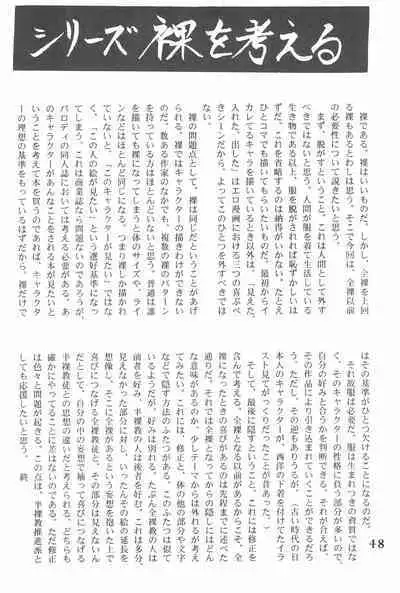 シリーズ 裸を考える
裸である。裸はいいものだ。しかし、全裸を上回
る裸もあるとわしは思う。そこで今回は、全裸以前
の必要性について説きたいと思う。
まず、脱がすということ。これは人間として外す
べきではないと思う。人間が服を着て生活している
生き物である以上、服を脱がされれば恥ずかしいは
ずだ。これを省略するのは納得がいかない。たとえ
ひとコマでも描いてもらいたいものだ。最初からイ
カレてるキャラを描いているとき以外は。「見えた、
入れた、出した」はエロ漫画における三つの喜ぶべ
きシーンだから、よってこのひとつを外すべきでは
ない。
裸の問題点として、裸は同じだということがあげ
られる。裸ではキャラクターの描きわけができない
のだ。数ある作家のなかでも、複数の裸のパターン
を持っている方はほとんどいないと思う。普通は誰
を描いても裸になってしまうと体のサイズや、ライ
ンなどはほとんど同じになる。つまり裸しか描かれ
ていないと、「このキャラクターが見たい」ではな
く、「この人の絵が見たい」という選好基準になっ
てしまう。これは商業誌なら問題ないのであろうが、
パロディの同人誌においては考える必要がある。あ
のキャラクターがあんなことをされる本が見たいと
いうことを考えて本を買うのであれば、キャラクタ
ーの理想の基準をもっているはずだから、裸だけで
はその基準がひとつ欠けることになるのだ。
それ故服は必要だ。服は生まれつきの資質ではな
く、そのキャラクターの性格に負う部分が多いので、
自分の好みと合うかを判断できる。それが合えば、
その作品により引き込まれていくことができるだろ
う。ただし、その逆もありうるが。「古い時代の日
本人のキャラクターが、西洋の下着を付けてたイラ
スト見てがっくりだったことがあった。
そして、最後に隠すということ。これには修正を
含んで考える。全裸となる以前があるからこそ、全
裸になったときの喜びがあるのは先程までに述べた
通りだ。それでは全裸となってからの隠しにはどん
な意味があるのか、少しテーマからは外れるが考え
てみたい。これには、修正と、体の他の部分や文字
などで隠す方法のふたつがある。このふたつは似て
いるようだが、好みは別れる。たぶん全裸教の人は
前者を好み、半裸教の人は後者を好む。これは多分、
見えなかった部分に対し、いったんその絵の延長を
想像し、そこに全裸があるという妄想を抱いた上で
喜びにつなげる全裸教徒と、その部分は見えないん
だとして、自分の中の妄想で補って喜びにつなげる
半裸教徒との思想の違いだと考えられる。どちらも
確かにやってることに差はないのである。ただ修正
は色々と問題が起きる。この点は、半裸教推進派と
しても応援したいと思う。 終
48